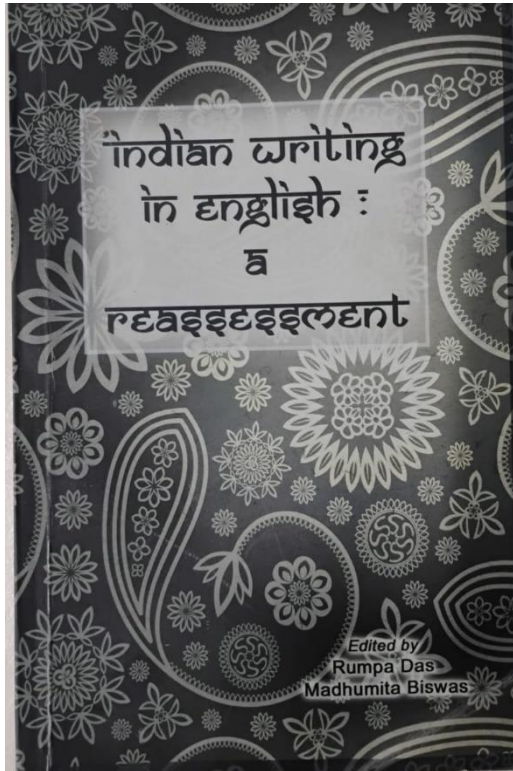 indian writing
in english :
a
reassessment
Edited by
Rumpa Das
Madhumita Biswas